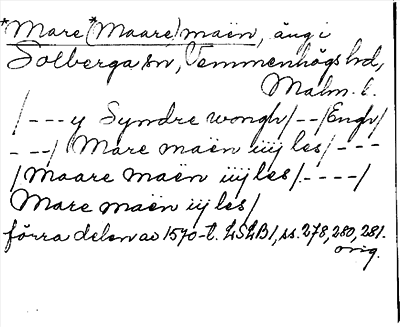 *Mare (*Maare) maën, äng i
Solberga sn, Vemmenhögs hd,
Malm. l.
/--- y Syndre wongh/--/Engh/
---/ Mare maën iiij les/---
/Maare maën iiij les/----/
Mare maën iij les/
förra delen av 1570-t. LSLB1, ss. 278, 280, 281.
orig.